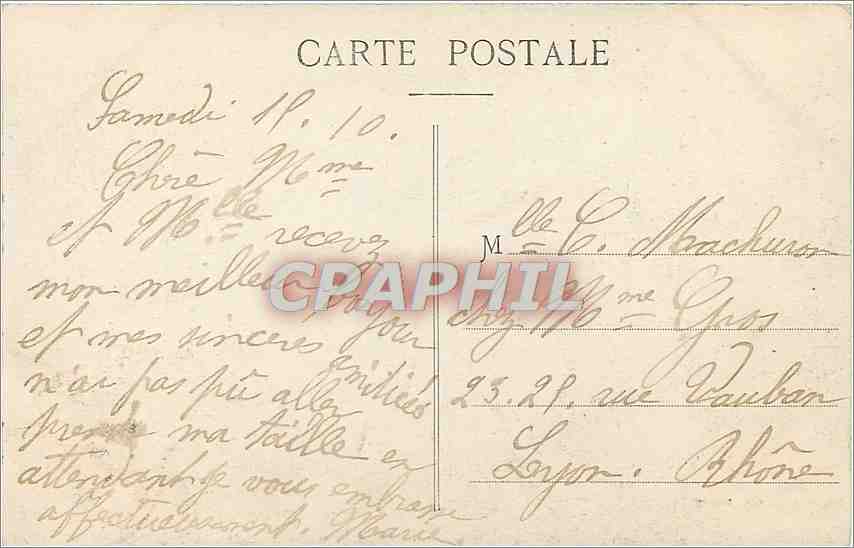 CARTE POSTALE
Samedi 15.10.
Chère Mme
et Mlle recevez
mon meilleur bonjour
et mes sincères amitiés
n'ai pas pû aller
prendre ma taille en
attendant je vous embrasse
affectueusement. Marie
Mlle C. Marchuron
chez Mme Gros
23.25. rue Vauban
Lyon. Rhône
CPAPHIL